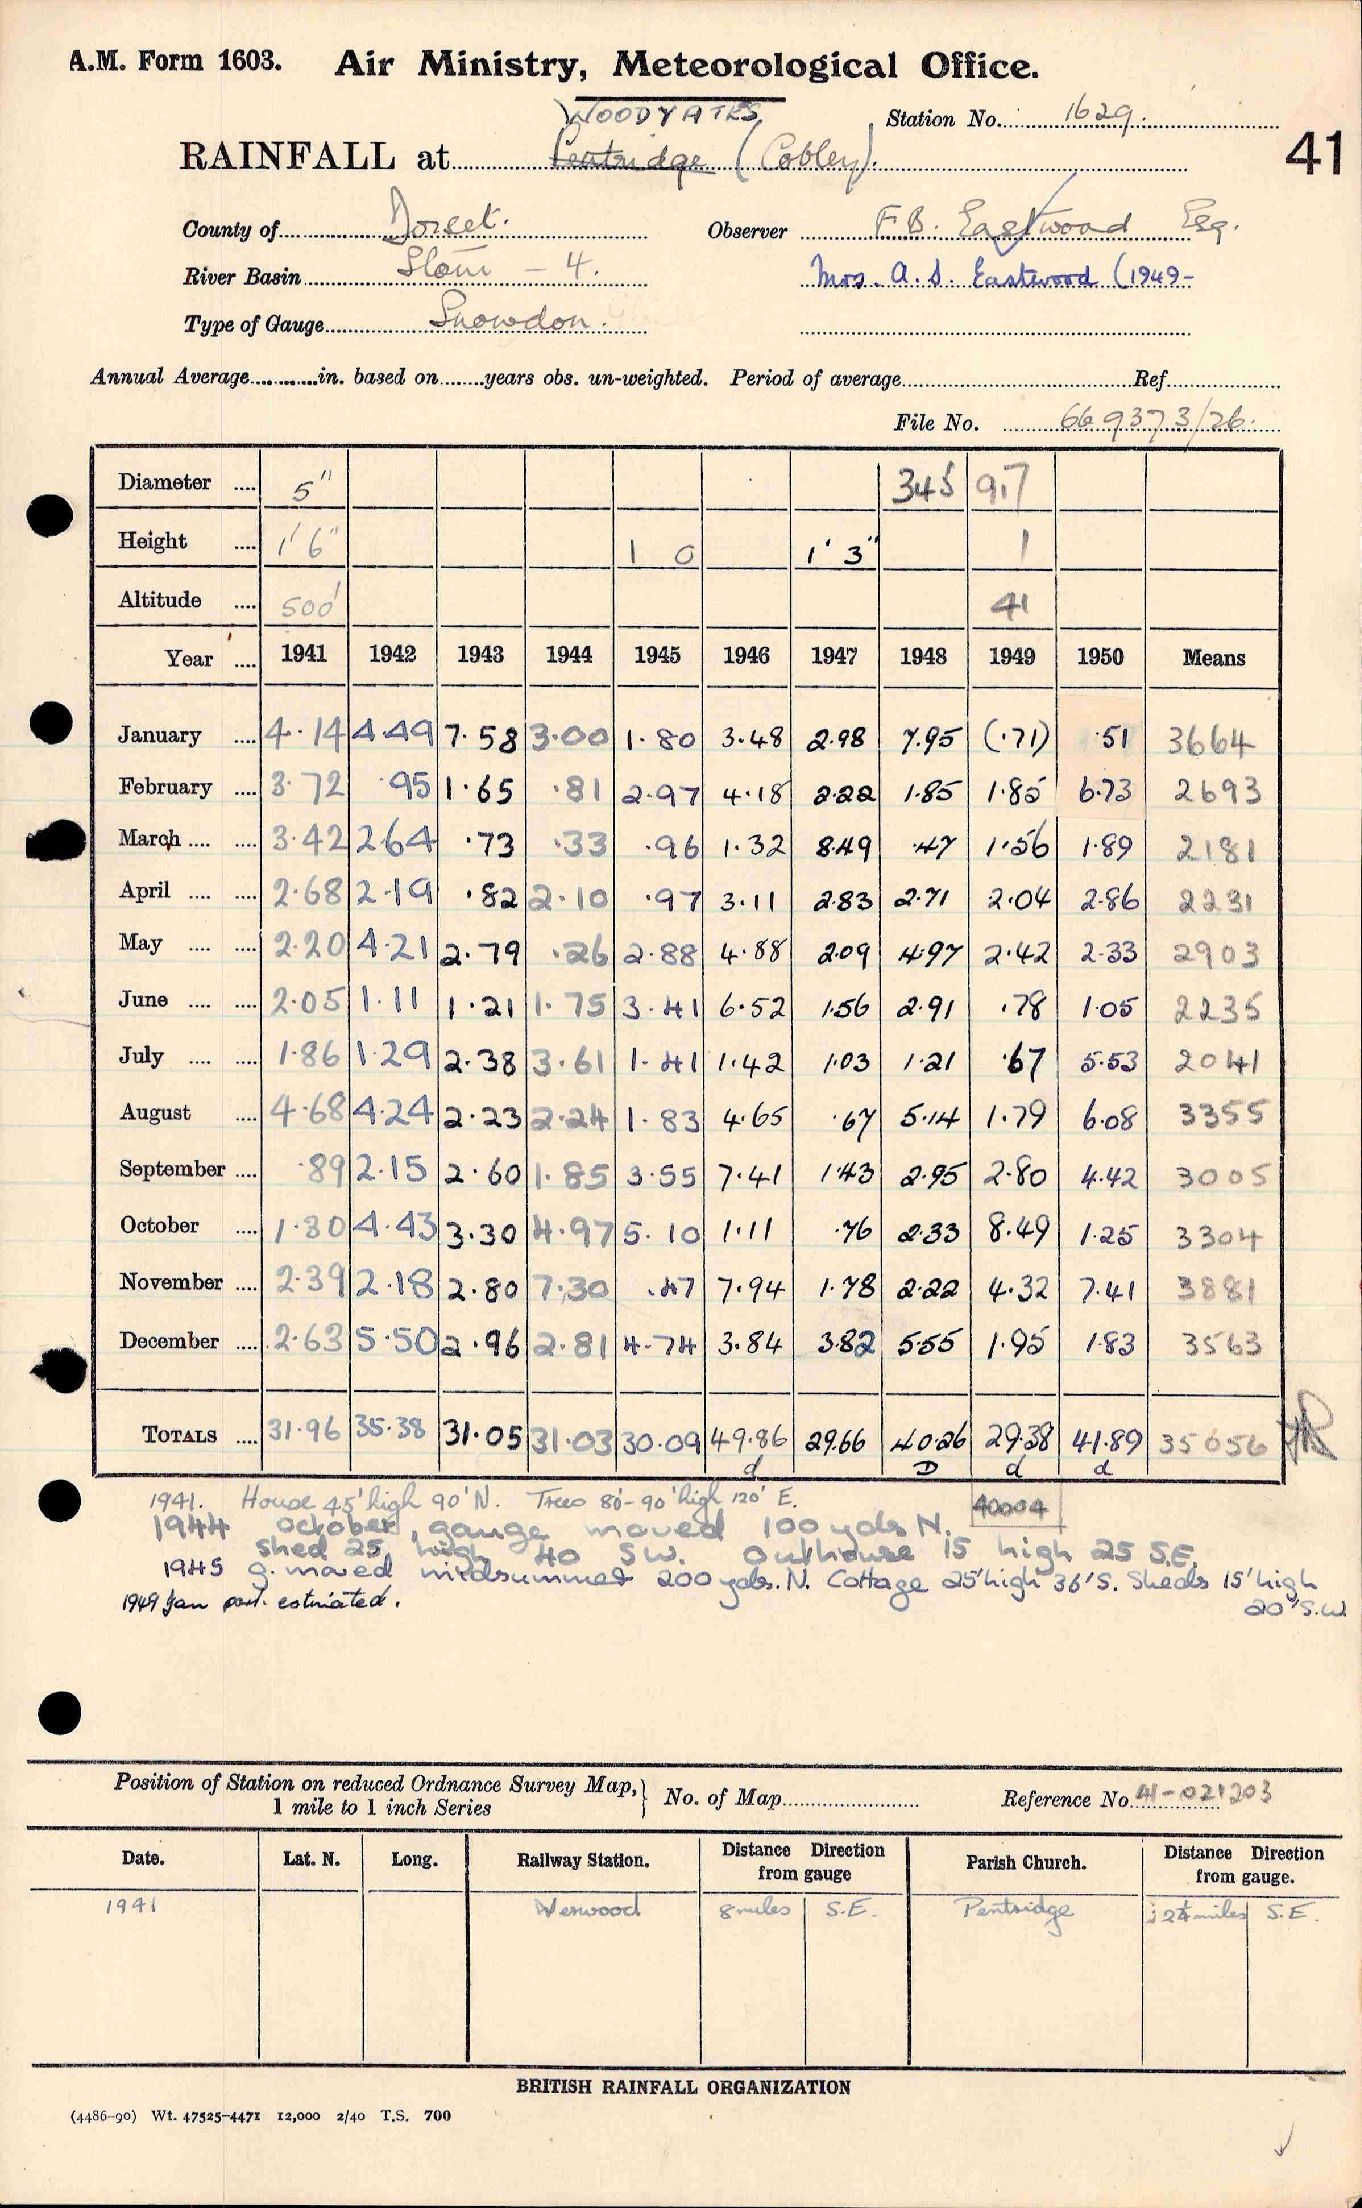 A.M. Form 1603. Air Ministry, Meteorological Office.
WOODYATES
Station No. 1629.
41
RAINFALL at Pentridge (Cobley).
County of Dorset. Observer F.B. Eastwood Esq.
River Basin Stour - 4. Mrs. A. S. Eastwood (1949-
Type of Gauge Snowdon.
Annual Average............in. based on.......years obs. un-weighted. Period of average............Ref............
File No. 669373/26.
Diameter .... 5" 345 97
Height .... 1' 6" 1 0 1' 3" 1
Altitude .... 500' 41
Year .... 1941 1942 1943 1944 1945 1946 1947 1948 1949 1950 Means
January .... 4.14 4.49 7.58 3.00 1.80 3.48 2.98 7.95 (.71) .51 3664
February .... 3.72 .95 1.65 .81 2.97 4.18 2.22 1.85 1.85 6.73 2693
March .... .... 3.42 2.64 .73 .33 .96 1.32 8.49 .47 1.56 1.89 2181
April .... .... 2.68 2.19 .82 2.10 .97 3.11 2.83 2.71 2.04 2.86 2231
May .... .... 2.20 4.21 2.79 .26 2.88 4.88 2.09 4.97 2.42 2.33 2903
June .... .... 2.05 1.11 1.21 1.75 3.41 6.52 1.56 2.91 .78 1.05 2235
July .... .... 1.86 1.29 2.38 3.61 1.41 1.42 1.03 1.21 .67 5.53 2041
August .... 4.68 4.24 2.23 2.24 1.83 4.65 .67 5.14 1.79 6.08 3355
September .... .89 2.15 2.60 1.85 3.55 7.41 1.43 2.95 2.80 4.42 3005
October .... 1.30 4.43 3.30 4.97 5.10 1.11 .76 2.33 8.49 1.25 3304
November .... 2.39 2.18 2.80 7.30 .47 7.94 1.78 2.22 4.32 7.41 3881
December .... 2.63 5.50 2.96 2.81 4.74 3.84 3.82 5.55 1.95 1.83 3563
TOTALS .... 31.96 35.38 31.05 31.03 30.09 49.86 29.66 40.26 29.38 41.89 35056
d D d d
1941. House 45' high 90' N. Trees 80'-90' high 120' E. 40004
1944 October, gauge moved 100 yds N.
Shed 25 high 40 S.W. Outhouse 15 high 25 S.E.
1945 g. moved midsummer 200 yds. N. Cottage 25' high 36' S. Sheds 15' high
20' S.W
1949 Jan part. estimated.
Position of Station on reduced Ordnance Survey Map,
1 mile to 1 inch Series
No. of Map............ Reference No. 41-021203
Date. Lat. N. Long. Railway Station. Distance Direction from gauge Parish Church. Distance Direction from gauge.
1941 Verwood 8 miles S.E. Pentridge 2¼ miles S.E.
BRITISH RAINFALL ORGANIZATION
(4486-90) Wt. 47525-4471 12,000 2/40 T.S. 700